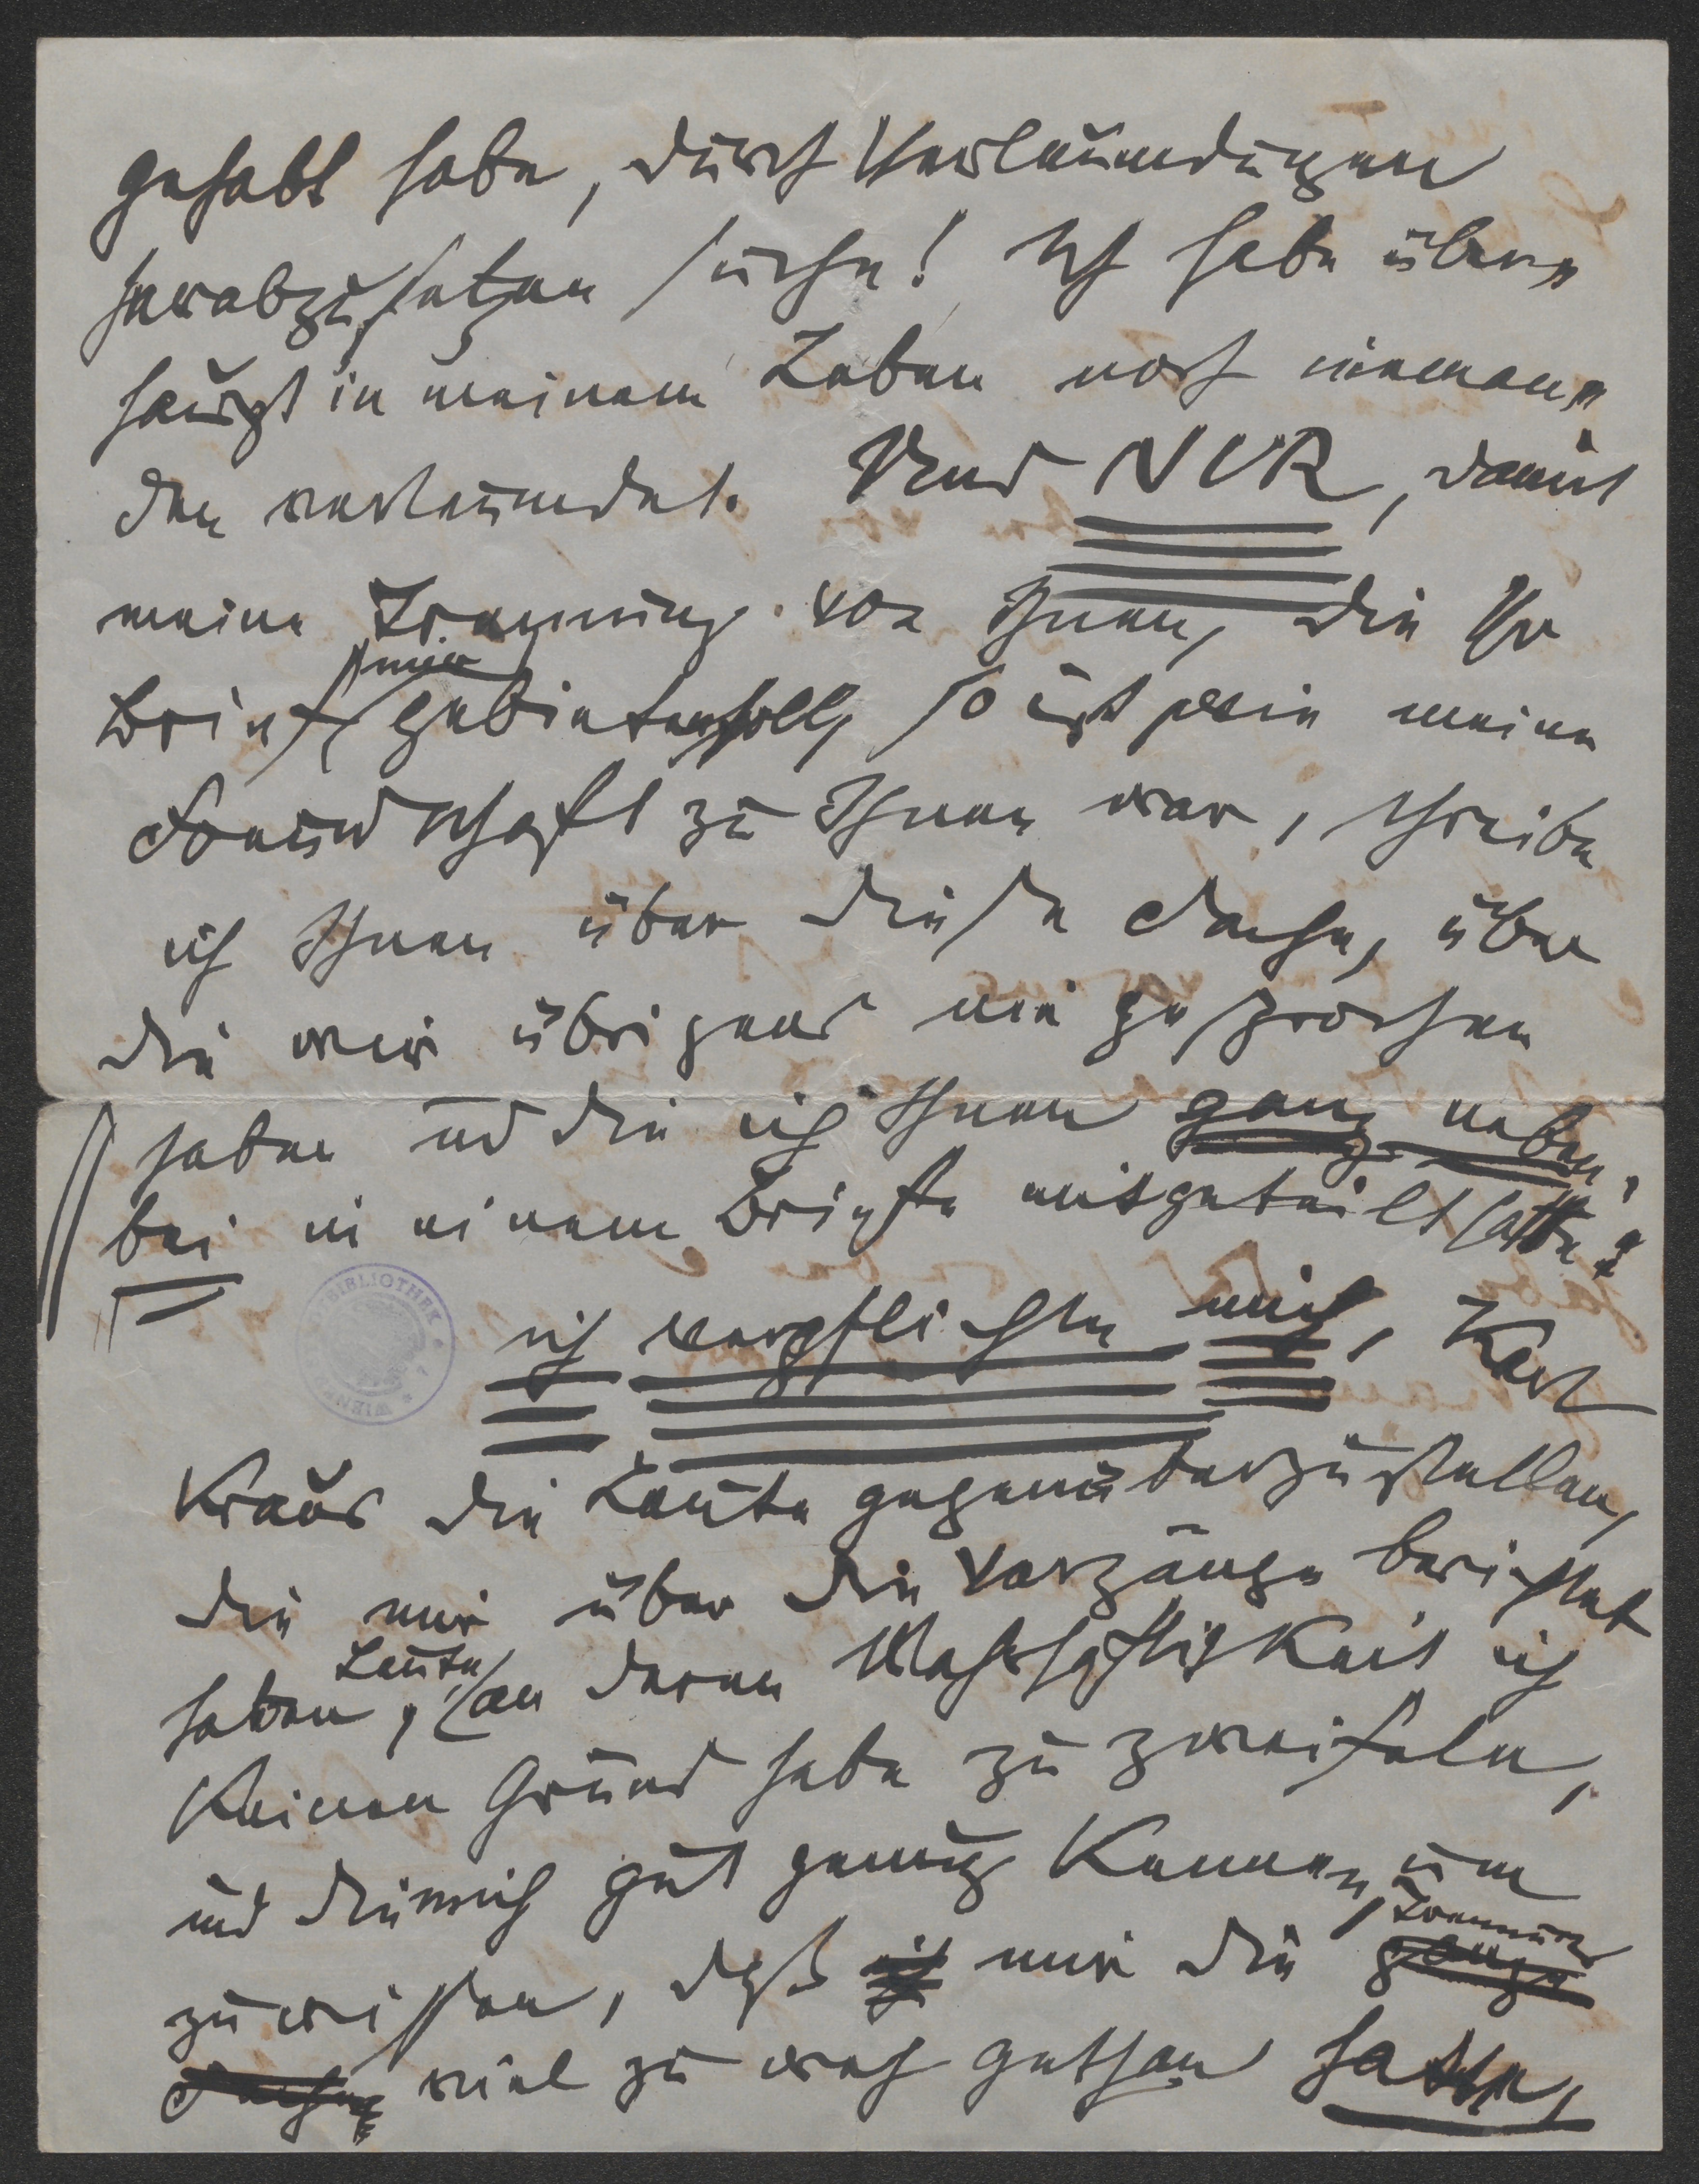 gehabt habe, durch Verläumdungen
herabzusetzen suche! Ich habe über„
haupt in meinem Leben noch nieman„
den verläumdet. Und NUR, damit
meine Trennung von Ihnen, die Ihr
Brief mir gebieten soll, so ist wie meine
Freundschaft zu Ihnen war, schreibe
ich Ihnen über diese Sache, über
die wir übrigens nie gesprochen
haben und die ich Ihnen ganz neben„
bei in einem Briefe mitgeteilt hatte:
ich verpflichte mich, Karl
Kraus die Leute gegenüberzustellen,
die mir über die Vorgänge berichtet
haben, Leute, an deren Wahrhaftigkeit ich
keinen Grund habe zu zweifeln,
und die mich gut genug kennen, um
zu wissen, daß ich mir die Trennung ganze
Sache viel zu weh gethan hatte,
BIBLIOTHEK
WIEN